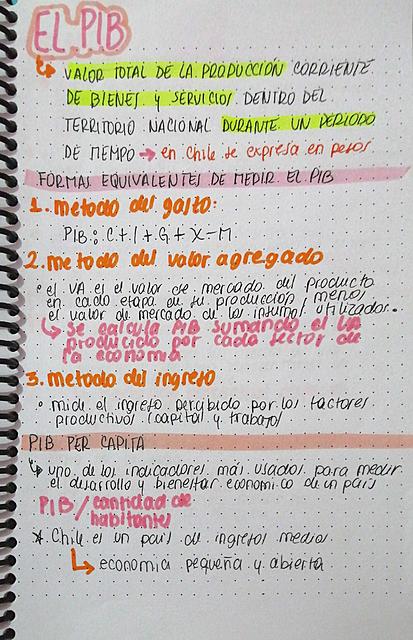 EL PIB
VALOR TOTAL DE LA PRODUCCIÓN CORRIENTE
DE BIENES Y SERVICIOS DENTRO DEL
TERRITORIO NACIONAL DURANTE UN PERIODO
DE TIEMPO → en Chile se expresa en pesos
FORMAS EQUIVALENTES DE MEDIR EL PIB
1. metodo del gasto:
PIB: C + I + G + X - M
2. metodo del valor agregado
• el VA es el valor de mercado del producto
en cada etapa de su producción, menos
el valor de mercado de los insumos utilizados.
↳ Se calcula PIB sumando el VA
producido por cada sector de
la economia
3. metodo del ingreso
• mide el ingreso percibido por los factores
productivos (capital y trabajo)
PIB PER CAPITA
↳ uno de los indicadores más usados para medir
el desarrollo y bienestar economico de un pais
PIB / cantidad de
habitantes
* Chile es un país de ingresos medios
↳ economia pequeña y abierta